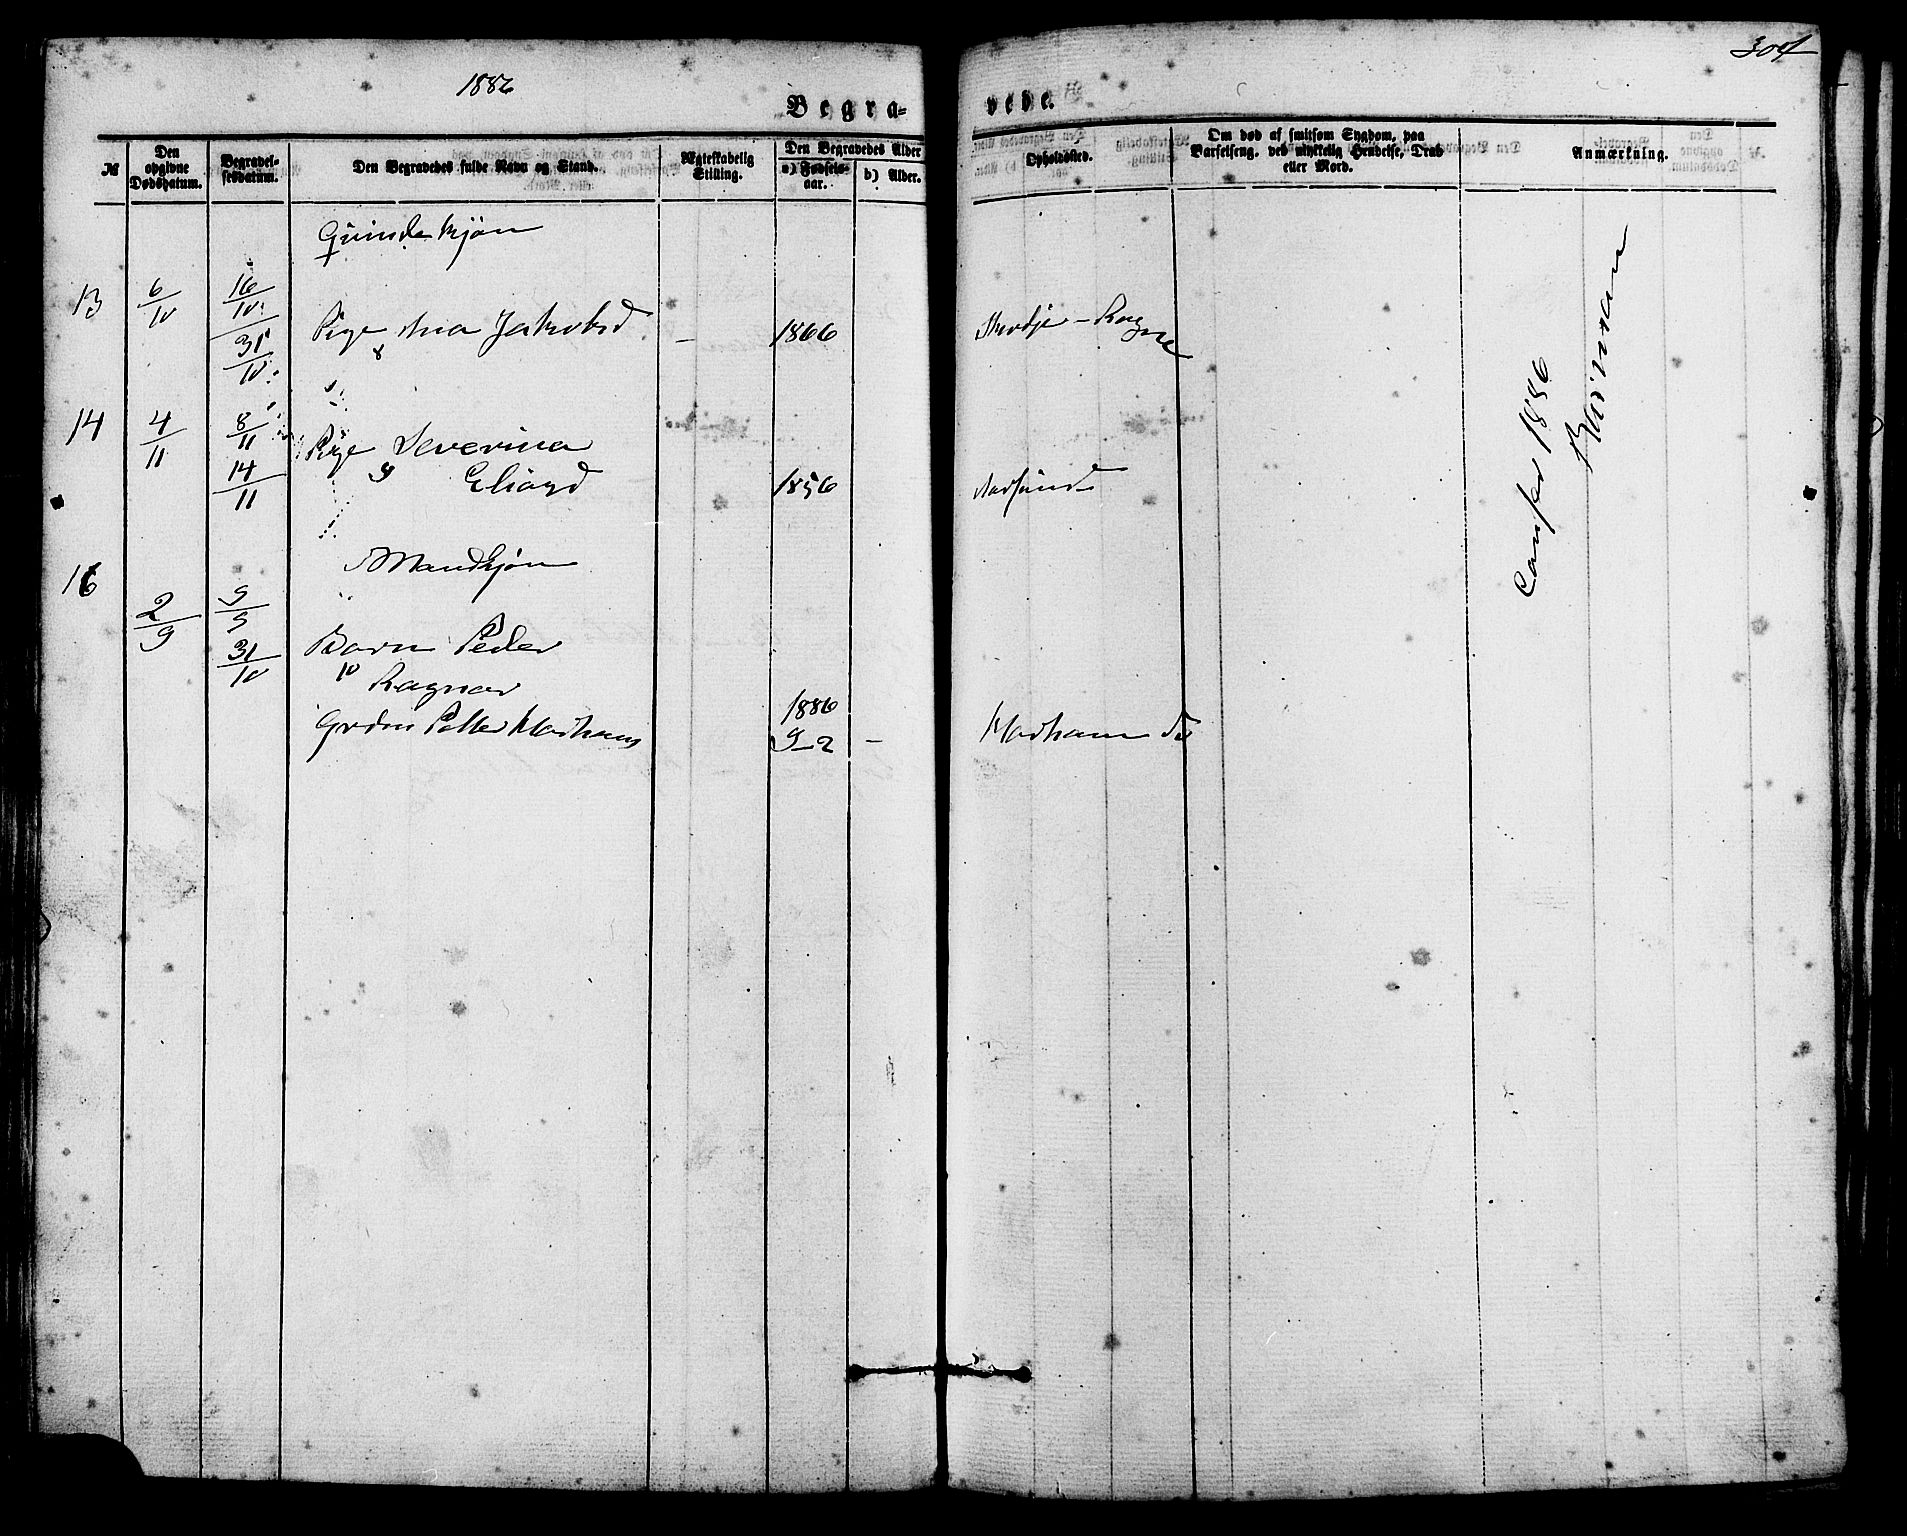 304
1886
Begra-
vede.
№
Den opgivne Dødsdatum.
Begravelsesdatum.
Den Begravedes fulde Navn og Stand.
Ægteskabelig Stilling.
Den Begravedes Alder
a) Fødselsaar.
b) Alder.
Opholdssted.
Om død af smitsom Sygdom, paa Barselseng, ved ulykkelig Hendelse, Drab eller Mord.
Anmærkning.
Qvindekjøn
13 6/10 16/10
31/10 Pige Ana Jakobsd - 1866
14 4/11 8/11 Pige Severina
14/11 Eliasd 1856
Mandkjøn
16
2/9 5/9
31/10 Barn Peder
Ragnar
Petter 1886
9-2 -
Confer 1886